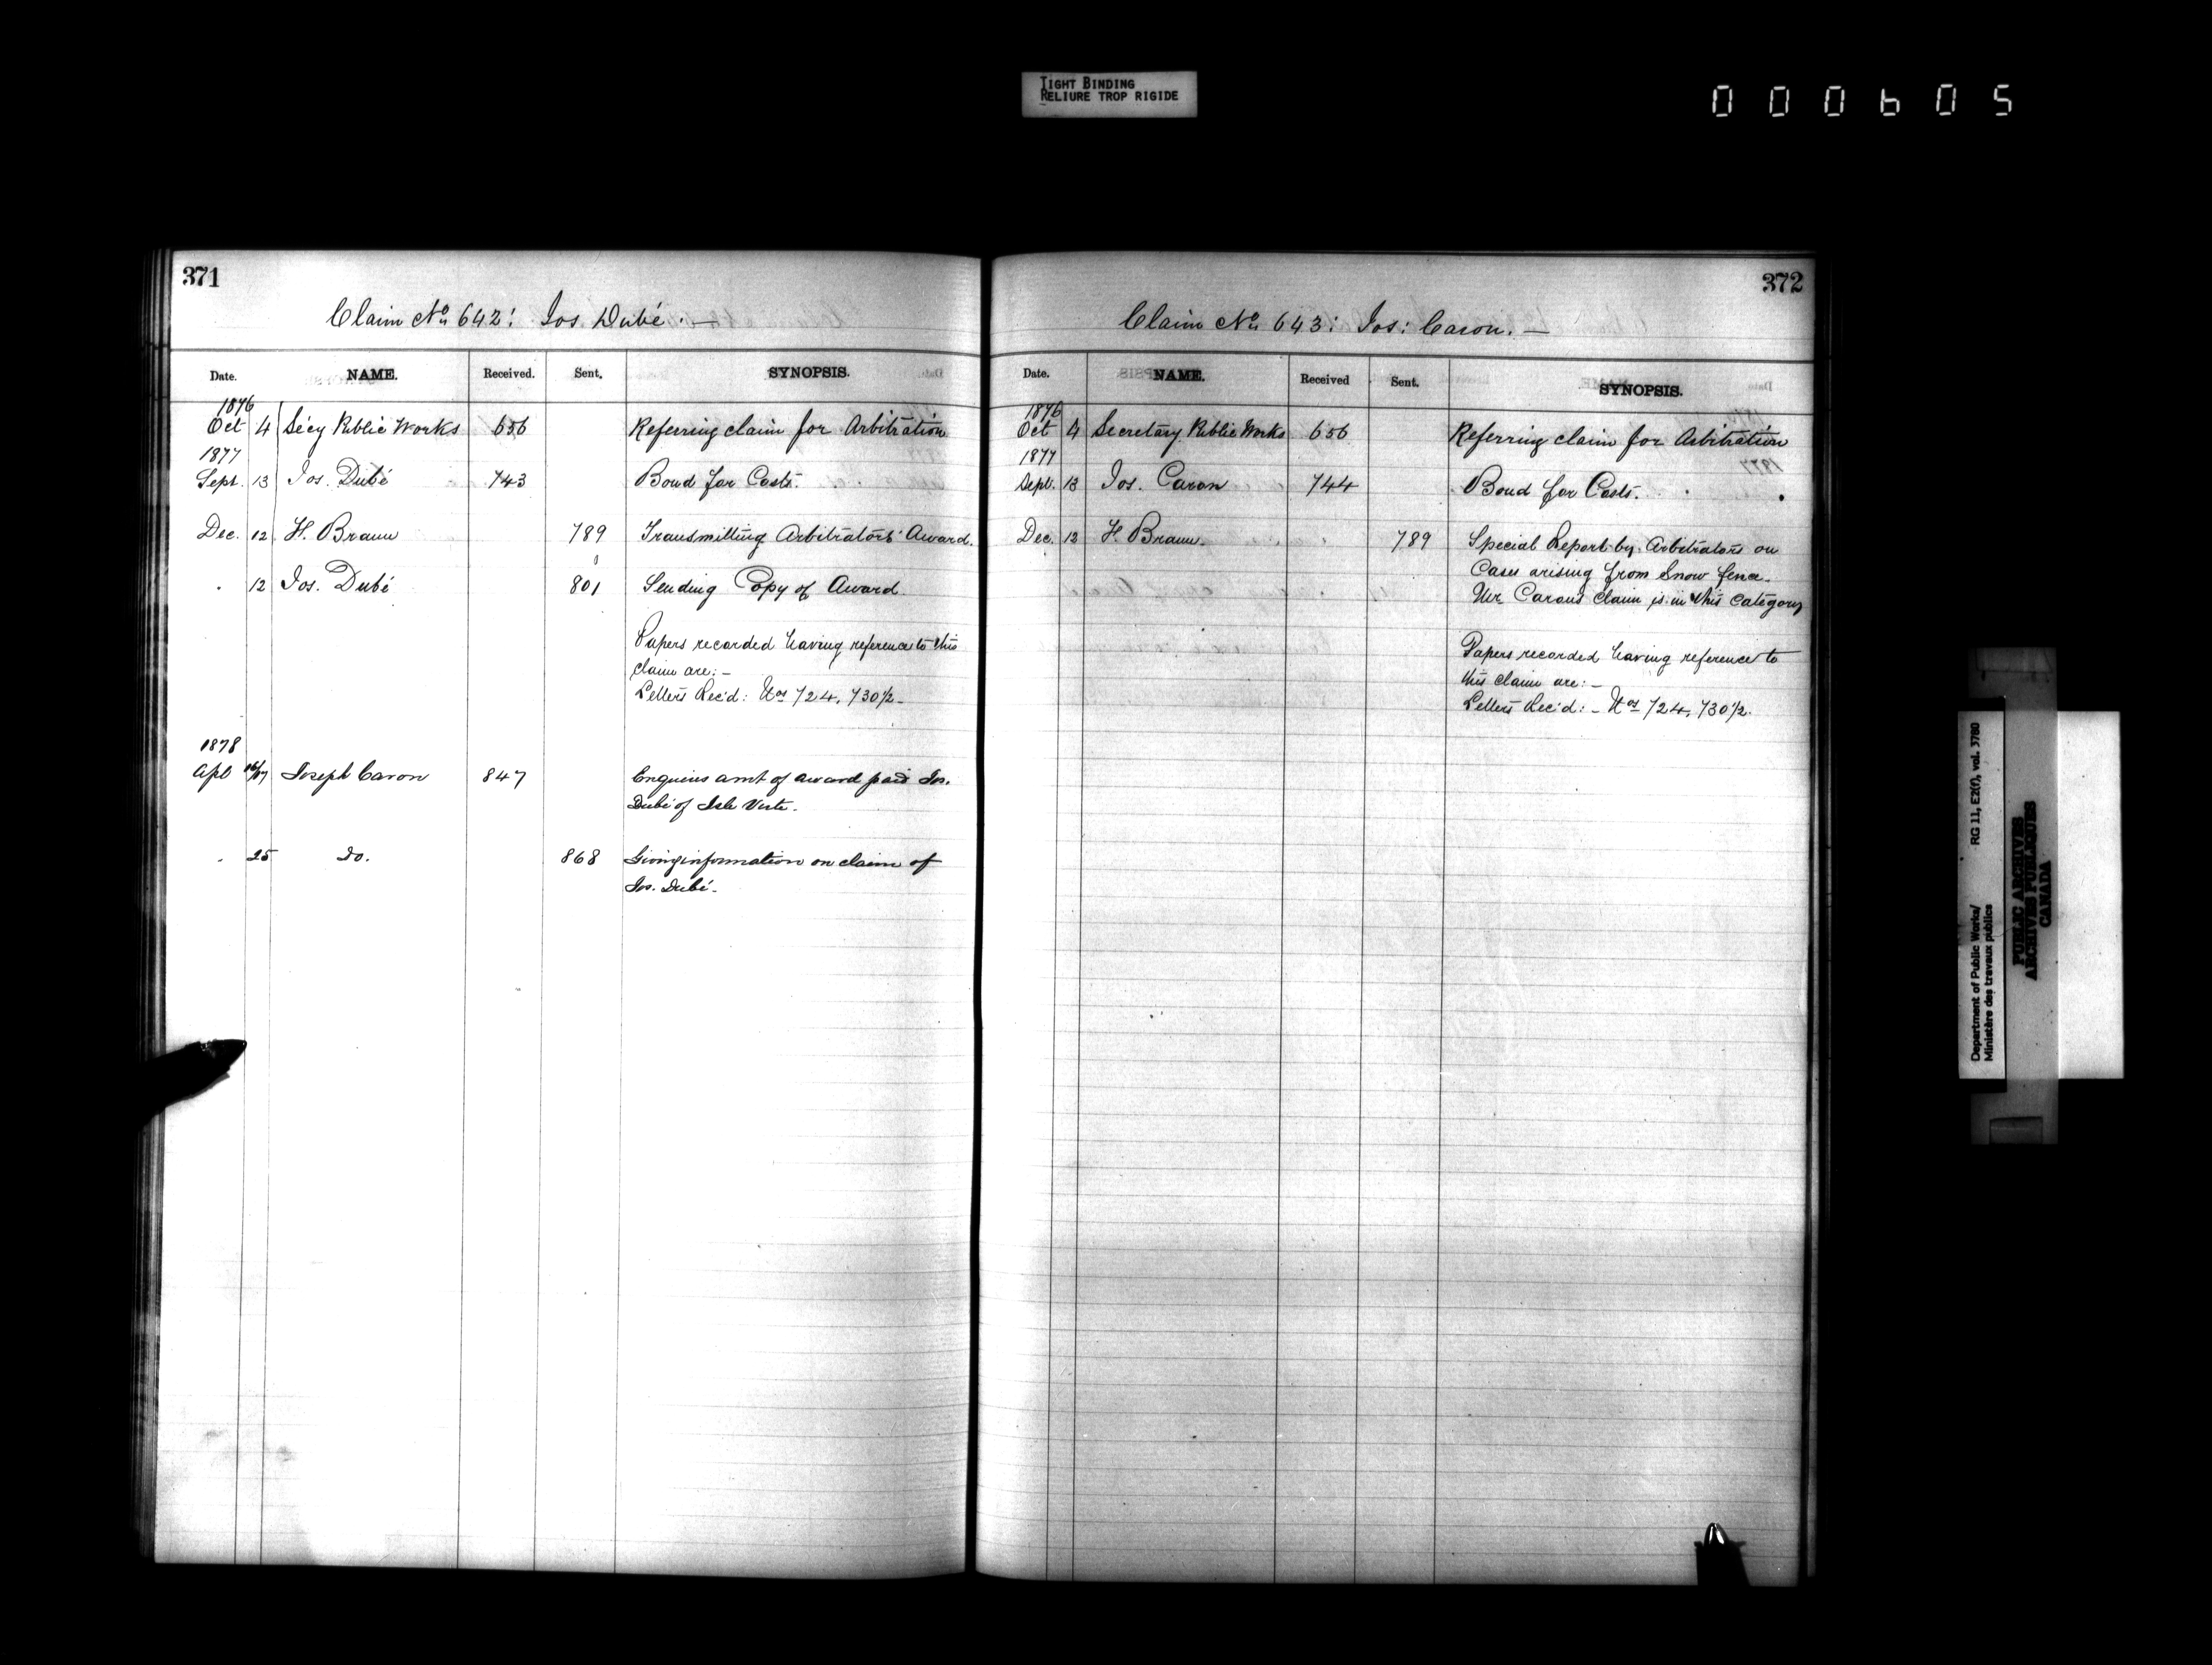 TIGHT BINDING
RELIURE TROP RIGIDE
000605
371
Claim No 642: Jos. Dubé. —
Date. NAME. Received. Sent. SYNOPSIS.
1876
Oct 4 Secy Public Works 656 Referring claim for Arbitration
1877
Sept. 13 Jos. Dubé 743 Bond for Costs.
Dec. 12 H. Braun 789 Transmitting Arbitrators' Award.
" 12 Jos. Dubé 801 Sending Copy of Award.
Papers recorded having reference to this
claim are: —
Letters Rec'd: Nos 724, 730½ —
1878
Apl 16/17 Joseph Caron 847 Enquires amt of award paid Jos.
Dubé of Isle Verte.
" 25 Do. 868 Giving information on claim of
Jos. Dubé.
372
Claim No 643: Jos: Caron. —
Date. NAME. Received Sent. SYNOPSIS.
1876
Oct 4 Secretary Public Works 656 Referring claim for Arbitration
1877
Sept. 13 Jos. Caron 744 Bond for Costs.
Dec. 12 H. Braun. 789 Special Report by Arbitrators on
Cases arising from Snow fence.
Mr Caron's claim is in this category
Papers recorded having reference to
this claim are: —
Letters Rec'd: — Nos 724, 730½.
Department of Public Works/ RG 11, E2(f), vol. 3780
Ministère des travaux publics
PUBLIC ARCHIVES
ARCHIVES PUBLIQUES
CANADA